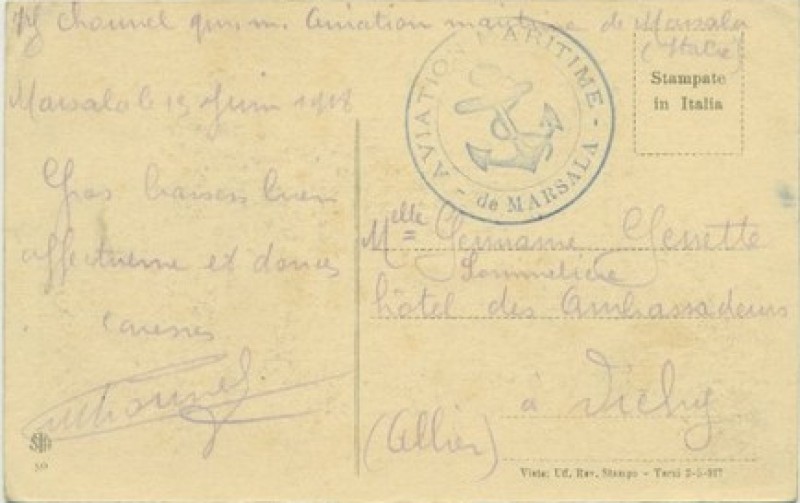 Chaunel Aviation maritime de Marsala
(Italie)
Marsala le 15 Juin 1918
Gros baisers bien
affectueux et douces
caresses
AVIATION MARITIME - de MARSALA -
Stampate
in Italia
Melle Germaine Genette
Sommelière
hôtel des Ambassadeurs
à Vichy
(Allier)
Visto: Uf. Rev. Stampo - Terni 2-5-917